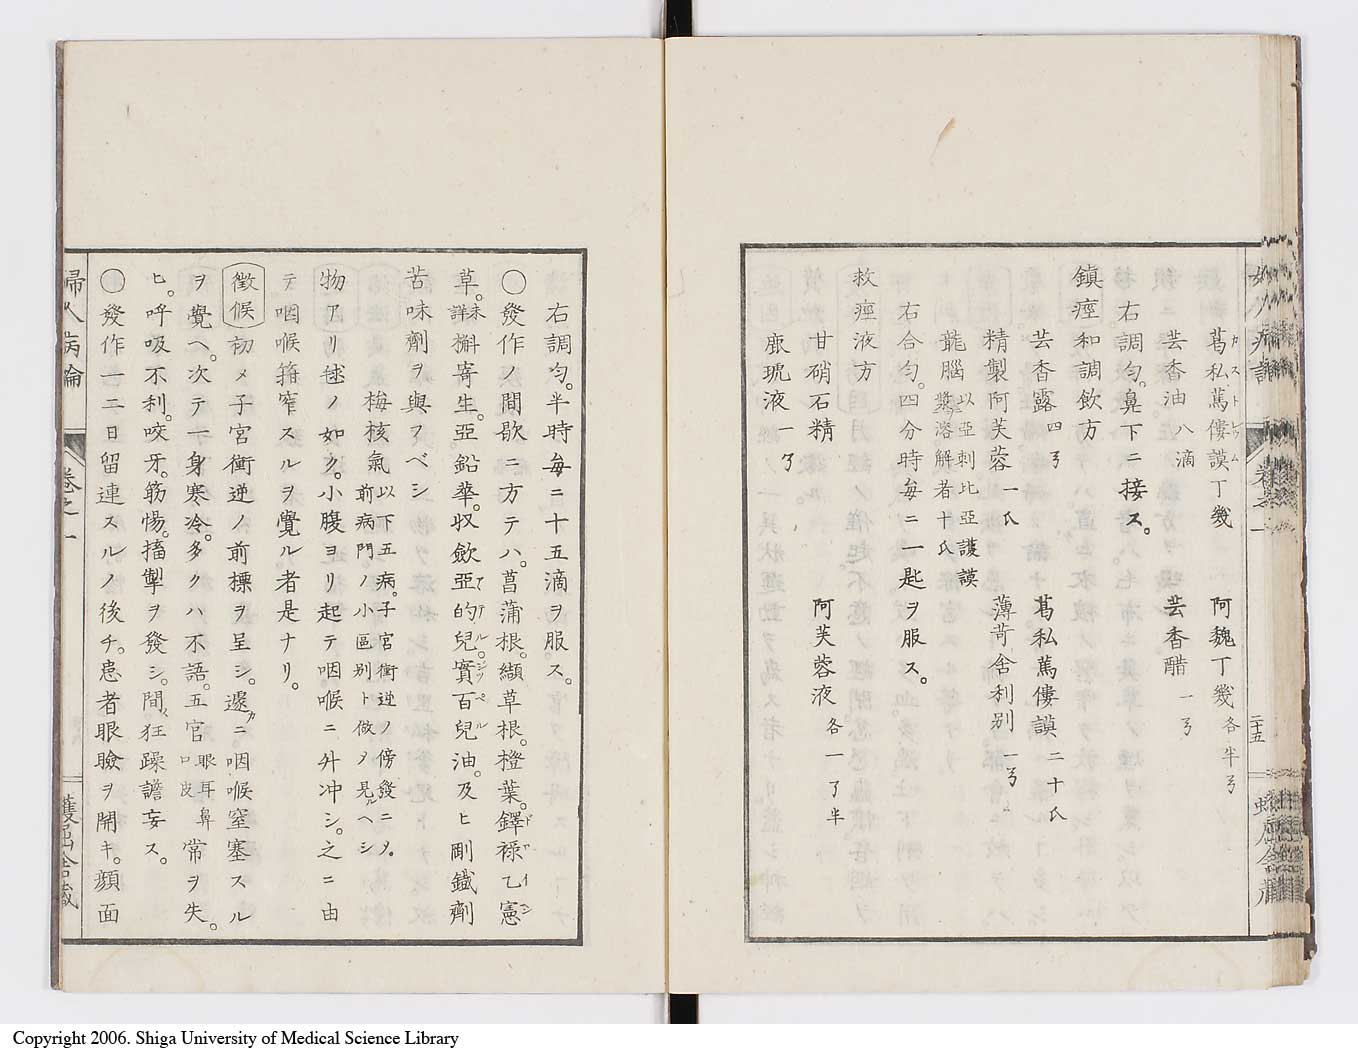 婦人病論
卷之一
二十五
葛私篤僂謨丁幾 カストレウム
阿魏丁幾 各半𠄎
芸香油 八滴
芸香醋 一𠄎
右調勻。鼻下ニ接ス。
鎮痙和調飲方
芸香露 四𠄎
葛私篤僂謨 二十氏
精製阿芙蓉 一氏
薄苛舍利別 一𠄎
龍腦 以亞刺比亞護謨漿溶解者 十氏
右合勻。四分時每ニ一匙ヲ服ス。
救痙液方
甘硝石精
阿芙蓉液 各一了半
鹿琥液 一𠄎
右調勻。半時每ニ十五滴ヲ服ス。
○發作ノ間歇ニ方テハ。菖蒲根。纈草根。橙葉。鐸祿乙憲
草。未詳 槲寄生。亞鉛華。收歛亞的兒。實百兒油。及ヒ剛鐵劑
苦味劑ヲ與フベシ
梅核氣 以下五病。子宮衝逆ノ傍發ニノ。前病門ノ小區別ト做ノ見ルヘシ
物アリ毬ノ如ク。小腹ヨリ起テ咽喉ニ升冲シ。之ニ由
テ咽喉箝窄スルヲ覺ルヽ者是ナリ。
徵候 初メ子宮衝逆ノ前標ヲ呈シ。遽カニ咽喉窒塞スル
ヲ覺ヘ。次テ一身寒冷。多クハ不語。五官 眼耳鼻口皮 常ヲ失
ヒ。呼吸不利。咬牙。筋惕。搐掣ヲ發シ。間〻狂躁譫妄ス。
○發作一二日留連スルノ後チ。患者眼瞼ヲ開キ。顏面
婦人病論
卷之一
蠖屈舍藏
Copyright 2006. Shiga University of Medical Science Library